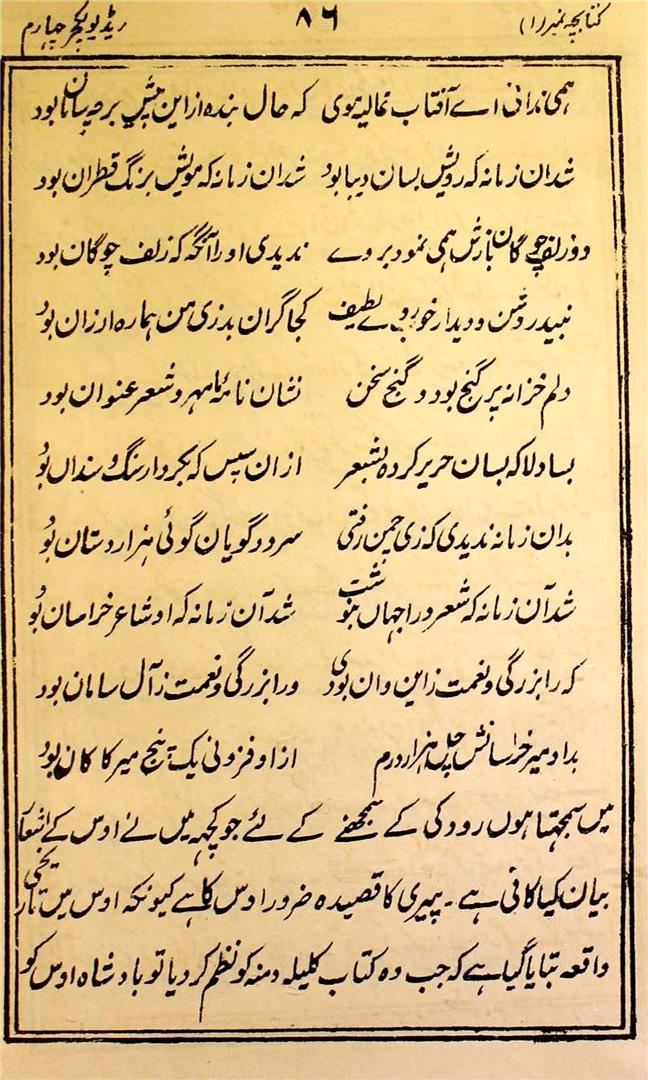 کتابچہ نمبر (۱) ۸۶ ریڈیو لکچر چہارم
ہمی ندانی اے آفتاب غالیہ موی کہ حال بندہ ازاین پیش برچہ سانان بود
شدان زمانہ کہ رویش بسان دیبا بود شدان زمانہ کہ مویش برنگ قطران بود
دوزلف چوگان نازش ہمی نمود بروے ندیدی اورا آنگہ کہ زلف چوگان بود
نبید روشن و دیدار خوب و روے لطیف کجا گران بد زی من ہمارہ ارزان بود
دلم خزانہ پر گنج بود و گنج سخن نشان نامہ ما مہر و شعر عنوان بود
بسا دلا کہ بسان حریر کردہ بشعر ازان سپس کہ بکردار سنگ و سنداں بُو
بدان زمانہ ندیدی کہ زی چمن رفتی سرود گویان گوئی ہزار دستان بُو
شد آن زمانہ کہ شعر ورا جہاں بنوشت شد آن زمانہ کہ او شاعر خراسان بُو
کہ را بزرگی و نعمت زاین و ان بودی ورا بزرگی و نعمت ز آل سامان بود
بداد میر خراسانش چہل ہزار درم ازاو فزونی یک پنج میر ماکان بود
میں سمجہتا ہوں رودکی کے سمجھنے کے لئے جو کچہہ میں نے اوس کے اشعار
بیان کیا کافی ہے ۔ پیری کا قصیدہ ضرور اوس کا ہے کیونکہ اوس میں تاریخی
واقعہ بتایا گیا ہے کہ جب وہ کتاب کلیلہ دمنہ کو نظم کر دیا تو بادشاہ اوس کو